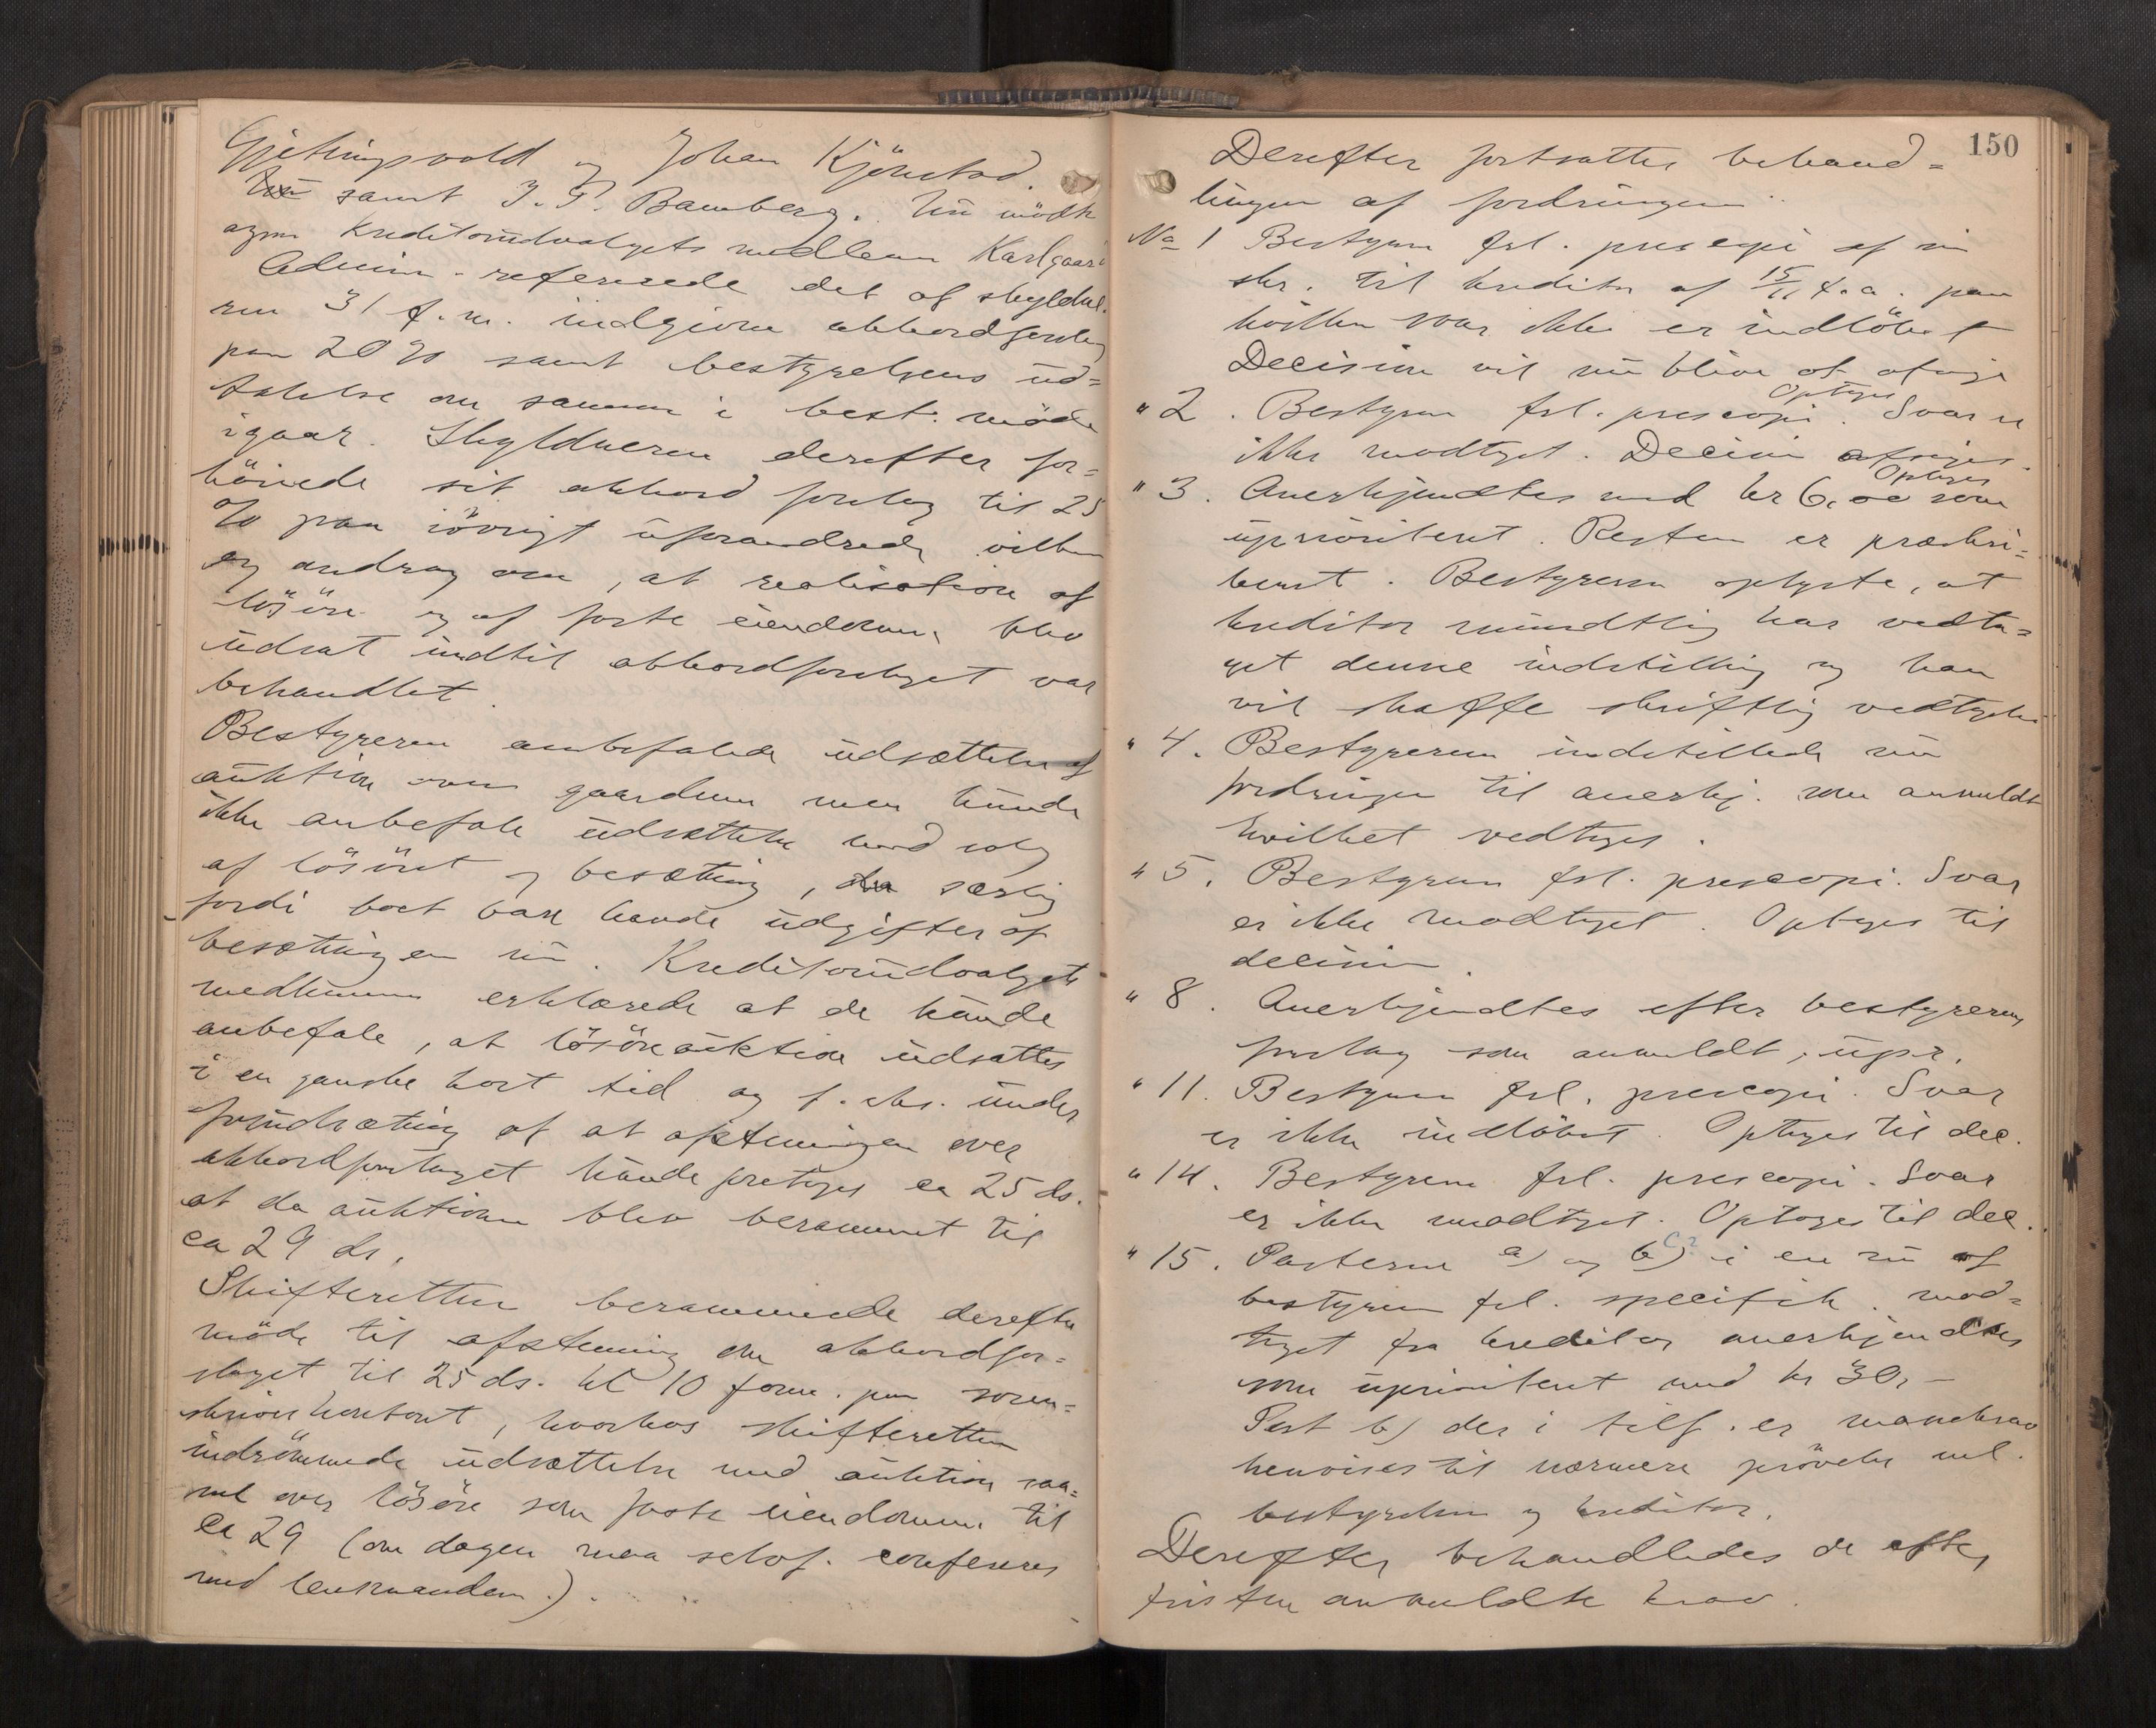 Gjetingsvold og Johan Kjönstad.
samt I. G. Bamberg. Nu mödte
ogsaa Kreditorudvalgets medlem Karlgaard
Admin. refererede det af skyldne-
ren 31 f.m. indgivne akkordforslag
paa 20 % samt bestyrelsens ud=
talelse om samme i best. möde
igaar. Skyldneren derefter for=
höiede sit akkord forslag til 25
% paa iövrigt uforandrede vilkaar
og androg om, at realisation af
lösöre og af faste eiendomme blev
udsat indtil akkordforslaget var
behandlet.
Bestyreren anbefalede udsættelse af
auktion over gaardene men kunde
ikke anbefale udsættelse med salg
af lösöret og besætning, særlig
fordi boet bare havde udgifter af
besætningen nu. Kreditorudvalgets
medlemmer erklærede at de kunde
anbefale, at lösöreauktion udsattes
i en ganske kort tid og f. eks. under
forudsætning af at afstemningen over
akkordforslaget kunde foretages ca 25 ds.
at da auktionen blev berammet til
ca 29 ds.
Skifteretten berammede derefter
möde til afstemning om akkordfor=
slaget til 25 ds. kl 10 form. paa soren=
skriverkontoret, hvorhos skifteretten
indrömmede udsættelse med auktion saa=
vel over lösöre som faste eiendomme til
ca 29 (om dagen maa selvf. confereres
med lensmanden).
150
Derefter fortsattes behand=
lingen af fordringerne:
No 1 Bestyreren frl. presscopi af sin
skr. til kreditor af 15/11 f.a. paa
hvilken svar ikke er indlöbet
Decision vil nu blive at afsige
Optages
" 2. Bestyreren frl. presscopi. Svar er
ikke modtaget. Decision afsiges.
Optages
" 3. Anerkjendtes med kr 6,00 som
uprioriteret. Resten er præskri=
beret. Bestyreren oplyste, at
kreditor mundtlig har vedta=
get denne indstilling og han
vil skaffe skriftlig vedtagelse
" 4. Bestyreren indstillede nu
fordringen til anerkj. som anmeldt
hvilket vedtages.
" 5. Bestyreren frl. presscopi. Svar
er ikke modtaget. Optages til
decision.
" 8. Anerkjendtes efter bestyrerens
forslag som anmeldt, upr.
" 11. Bestyreren frl. presscopi. Svar
er ikke indlöbet. Optages til dec.
" 14. Bestyreren frl. presscopi. Svar
er ikke modtaget. Optages til dec.
" 15. Posterne a) og b) i en nu af
bestyreren frl. specifik. mod=
taget fra kreditor anerkjendtes
som uprioriteret med kr 30,-
Post b) der i tilf. er
henvises til nærmere prövelse ml.
bestyrelsen og kreditor.
Derefter behandledes de efter
fristen anmeldte krav.